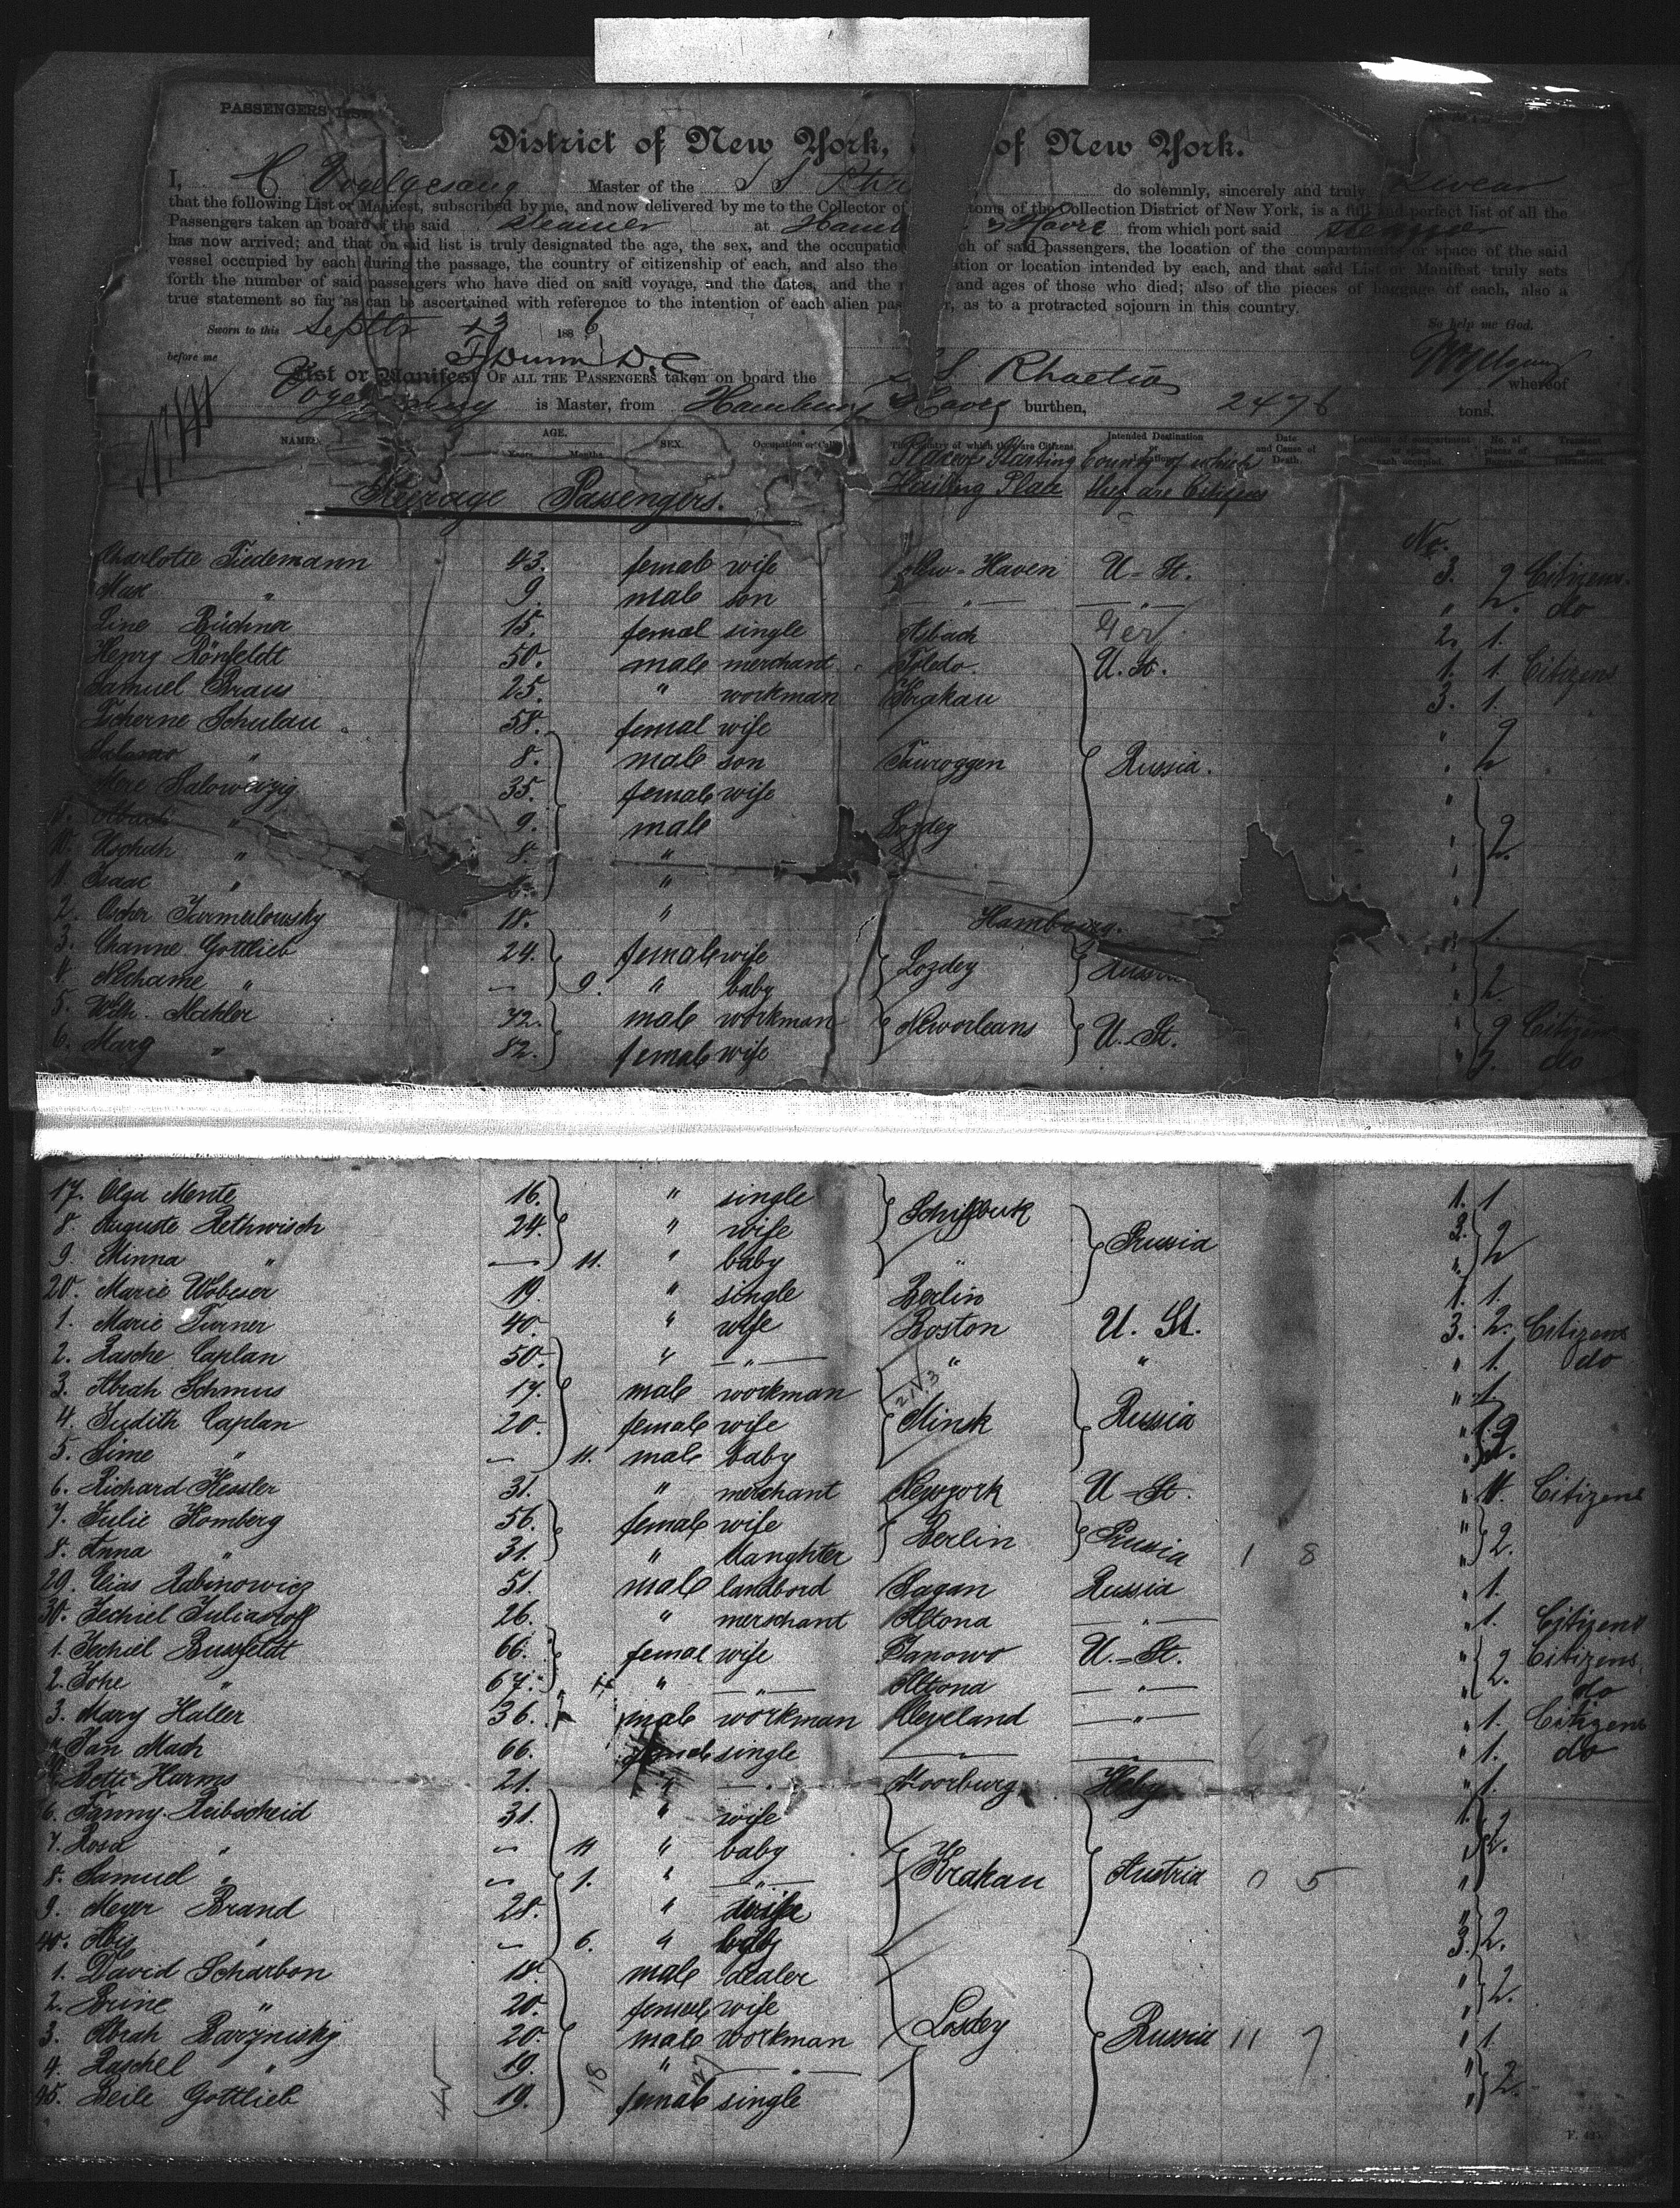 PASSENGERS LIST
District of New York, of New York.
I, H Vogelgesang Master of the S S Rha do solemnly, sincerely and truly swear
that the following List or Manifest, subscribed by me, and now delivered by me to the Collector of toms of the Collection District of New York, is a full and perfect list of all the
Passengers taken on board of the said steamer at Hamb & Havre from which port said steamer
has now arrived; and that on said list is truly designated the age, the sex, and the occupatio ch of said passengers, the location of the compartment or space of the said
vessel occupied by each during the passage, the country of citizenship of each, and also the ation or location intended by each, and that said List or Manifest truly sets
forth the number of said passengers who have died on said voyage, and the dates, and the and ages of those who died; also of the pieces of baggage of each, also a
true statement so far as can be ascertained with reference to the intention of each alien pas r, as to a protracted sojourn in this country.
Sworn to this Septbr 23 1886 So help me God.
before me
List or Manifest OF ALL THE PASSENGERS taken on board the S S Rhaetia whereof
is Master, from Hamburg Havre burthen, 2476 tons.
NAMES. AGE. Years Months SEX. Intended Destination Date and Cause of Death.
Hailing Place Country of which they are Citizens
Steerage Passengers.
No.
Charlotte Tiedemann 43. female wife New-Haven U-St. 3. 2 Citizens.
Max " 9. male son " " " 2. do
Line Büchner 15. femal single Asbach Ger 2. 1.
Henry Rönfeldt 50. male merchant Toledo. U. St. 1. 1. Citizens
Samuel Braus 25. " workman Krakau 3. 1.
Tscherne Schulau 58. femal wife " 2
" 8. male son Tauroggen Russia. "
35. female wife "
" 9. male Lozdey " 2.
10. " 8. " "
11. Isaac " " "
2. Oscher Jarmulowsky 18. " Hamburg. " 1.
3. Channe Gottlieb 24. female wife Lozdey Russia " 2.
4. Nechame " — 9. " baby "
5. Wilh. Mahler 72. male workman Neworleans U. St. " 2 Citizens
6. Marg " 82. female wife " do
17. Olga Mente 16. " single Schiffbek 1. 1
8. Auguste Rethwisch 24. " wife Prussia 3. 2
9. Minna " — 11. " baby " "
20. Marie Wobeser 19. " single Berlin 1. 1.
1. Marie Turner 40. " wife Boston U. St. 3. 2. Citizens
2. Rasche Caplan 50. " — " — " " " 1. do
3. Abrah Schmus 17. male workman "
4. Judith Caplan 20. female wife Minsk Russia "
5. Sime " — 11. male baby "
6. Richard Kessler 31. " merchant Newyork U-St. " Citizens
7. Julie Homberg 56. female wife Berlin Prussia " 2.
8. Anna " 31. " daughter " 1 8
29. Elias Rabinowicz 51. male landbord Sagan Russia " 1.
30. Jechiel Juliasoff 26. " merschant Altona — " — " 1. Citizens
1. Jechiel Bussfeldt 66. femal wife Janowo U.-St. " 2. Citizens
2. Johe " 67. " — " — Altona — " — " do
3. Mary Haller 36. male workman Cleveland — " — " 1. Citizens
" Jan Mach 66. female single — " — — " — " 1. do
Bette Harms 21. " — " Moorburg " 1.
6. Fanny Reibscheid 31. " wife 1. 2.
7. Rosa " — 11 " baby "
8. Samuel " — 1. " — " — Krakau Austria 0 5 "
9. Meyer Brand 28. " " 2.
40. " — 6. " baby 3.
1. David Scharbon 18. male dealer " 2.
2. Brine " 20. female wife "
3. Abrah Barznisky 20. male workman Losdey Russia 11 7 " 1.
4. Raschel " 19. " — " — " 2.
45. Beile Gottlieb 19. female single "